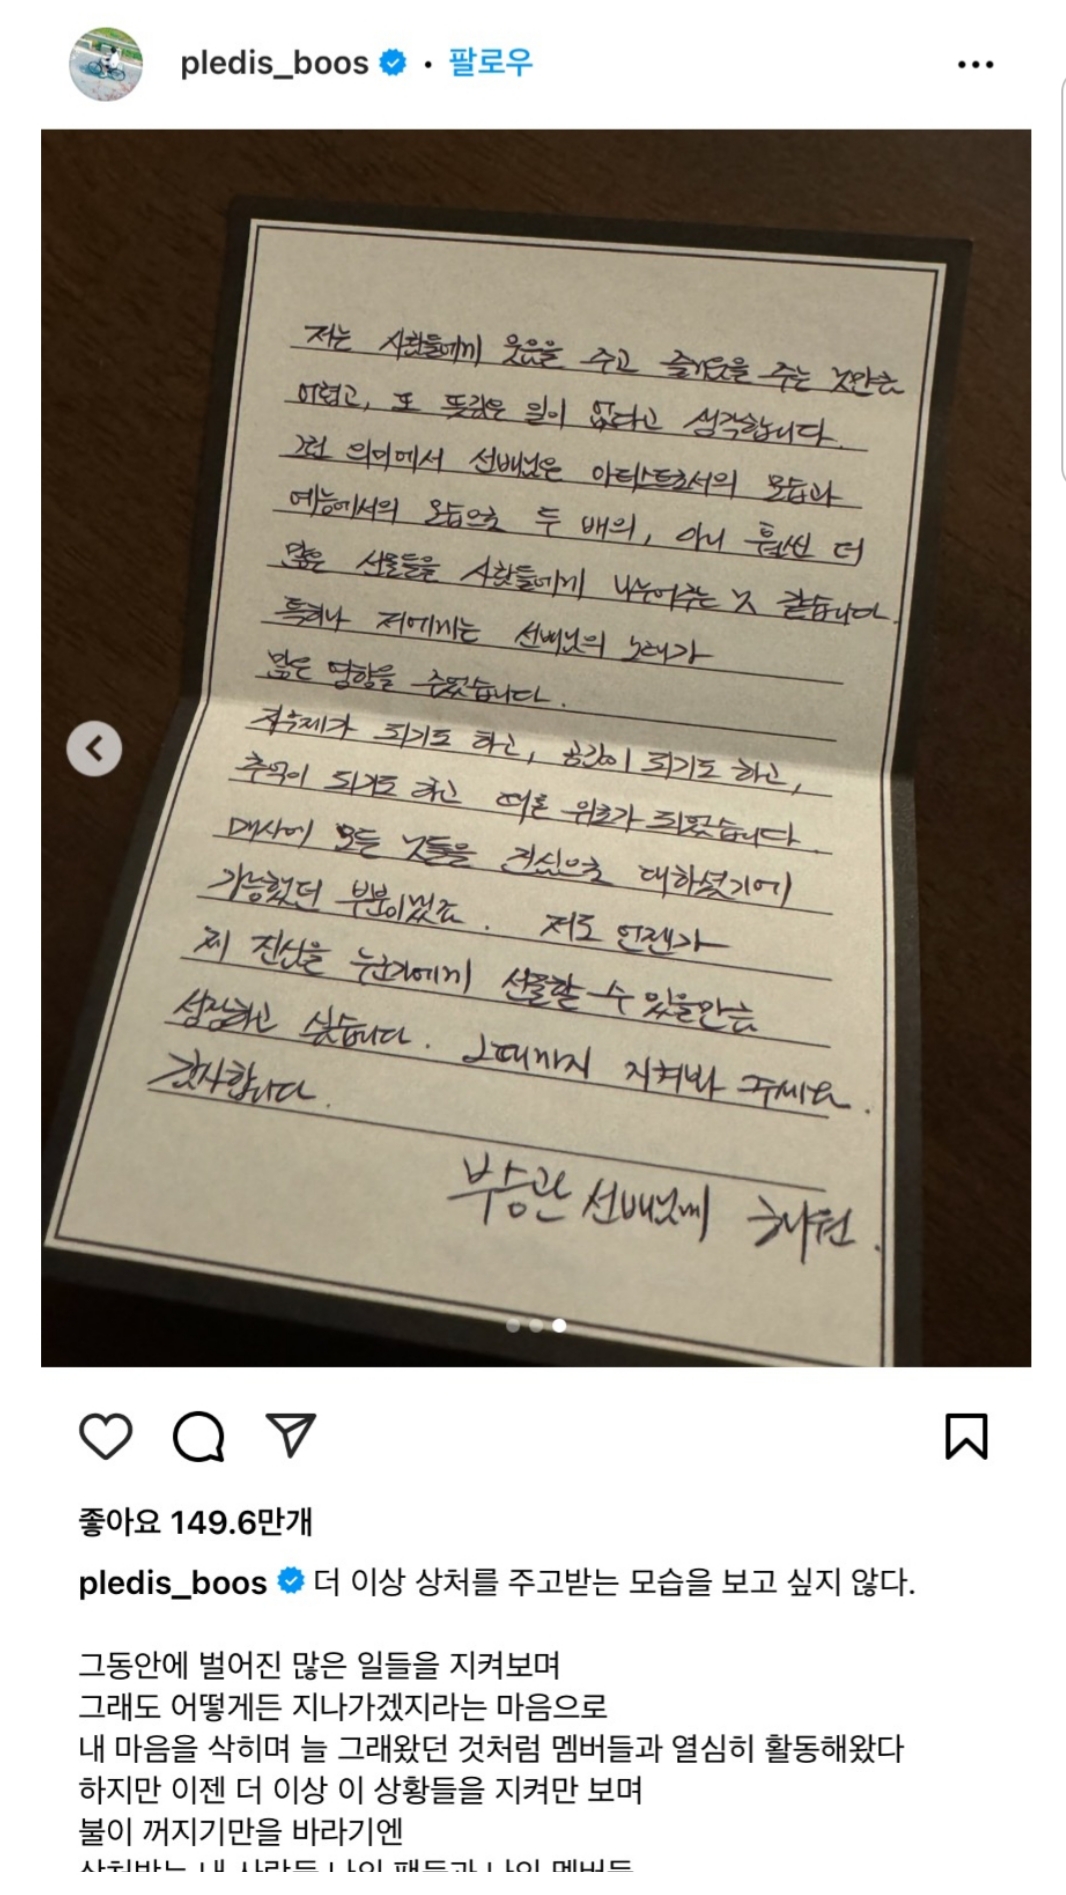 pledis_boos • 팔로우
저는 사람들에게 웃음을 주고 즐거움을 주는 것만큼
어렵고, 또 뜻깊은 일이 없다고 생각합니다.
그런 의미에서 선배님은 아티스트로서의 모습과
예능에서의 모습으로 두 배의, 아니 훨씬 더
많은 선물들을 사람들에게 나누어주는 것 같습니다.
특히나 저에게는 선배님의 노래가
많은 영향을 주었습니다.
자극제가 되기도 하고, 공감이 되기도 하고,
추억이 되기도 하고 때론 위로가 되었습니다.
매사에 모든 것들을 진심으로 대하셨기에
가능했던 부분이었죠. 저도 언젠가
제 진심을 누군가에게 선물할 수 있을만큼
성장하고 싶습니다. 그때까지 지켜봐 주세요.
감사합니다.
부승관 선배님께
좋아요 149.6만개
pledis_boos 더 이상 상처를 주고받는 모습을 보고 싶지 않다.
그동안에 벌어진 많은 일들을 지켜보며
그래도 어떻게든 지나가겠지라는 마음으로
내 마음을 삭히며 늘 그래왔던 것처럼 멤버들과 열심히 활동해왔다
하지만 이젠 더 이상 이 상황들을 지켜만 보며
불이 꺼지기만을 바라기엔